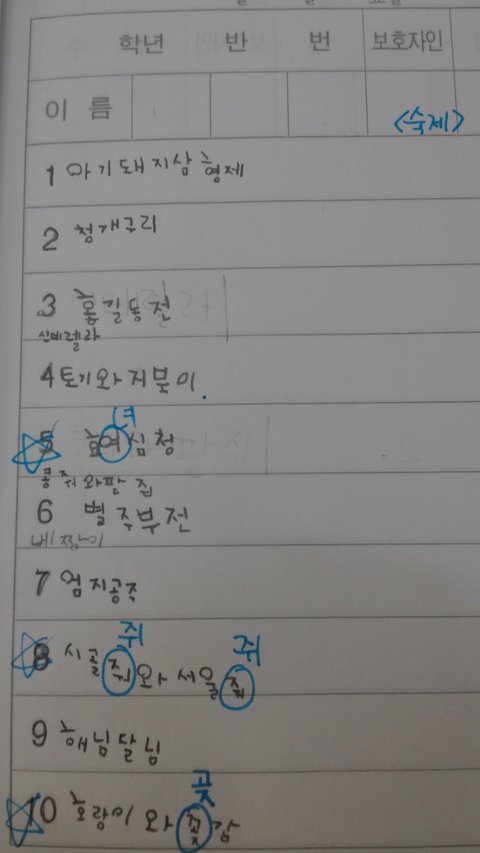 학년 반 번 보호자인
이름
<숙제>
1 아기돼지삼형제
2 청개구리
3 홍길동전
신데렐라
4 토기와 자물이.
녀
5 효여심청
콩쥐와팥쥐
6 별주부전
베짱이
7 엄지공주
쥐 쥐
8 시골줘와서울줘
9 해님달님
곶
10 호랑이와꽂감